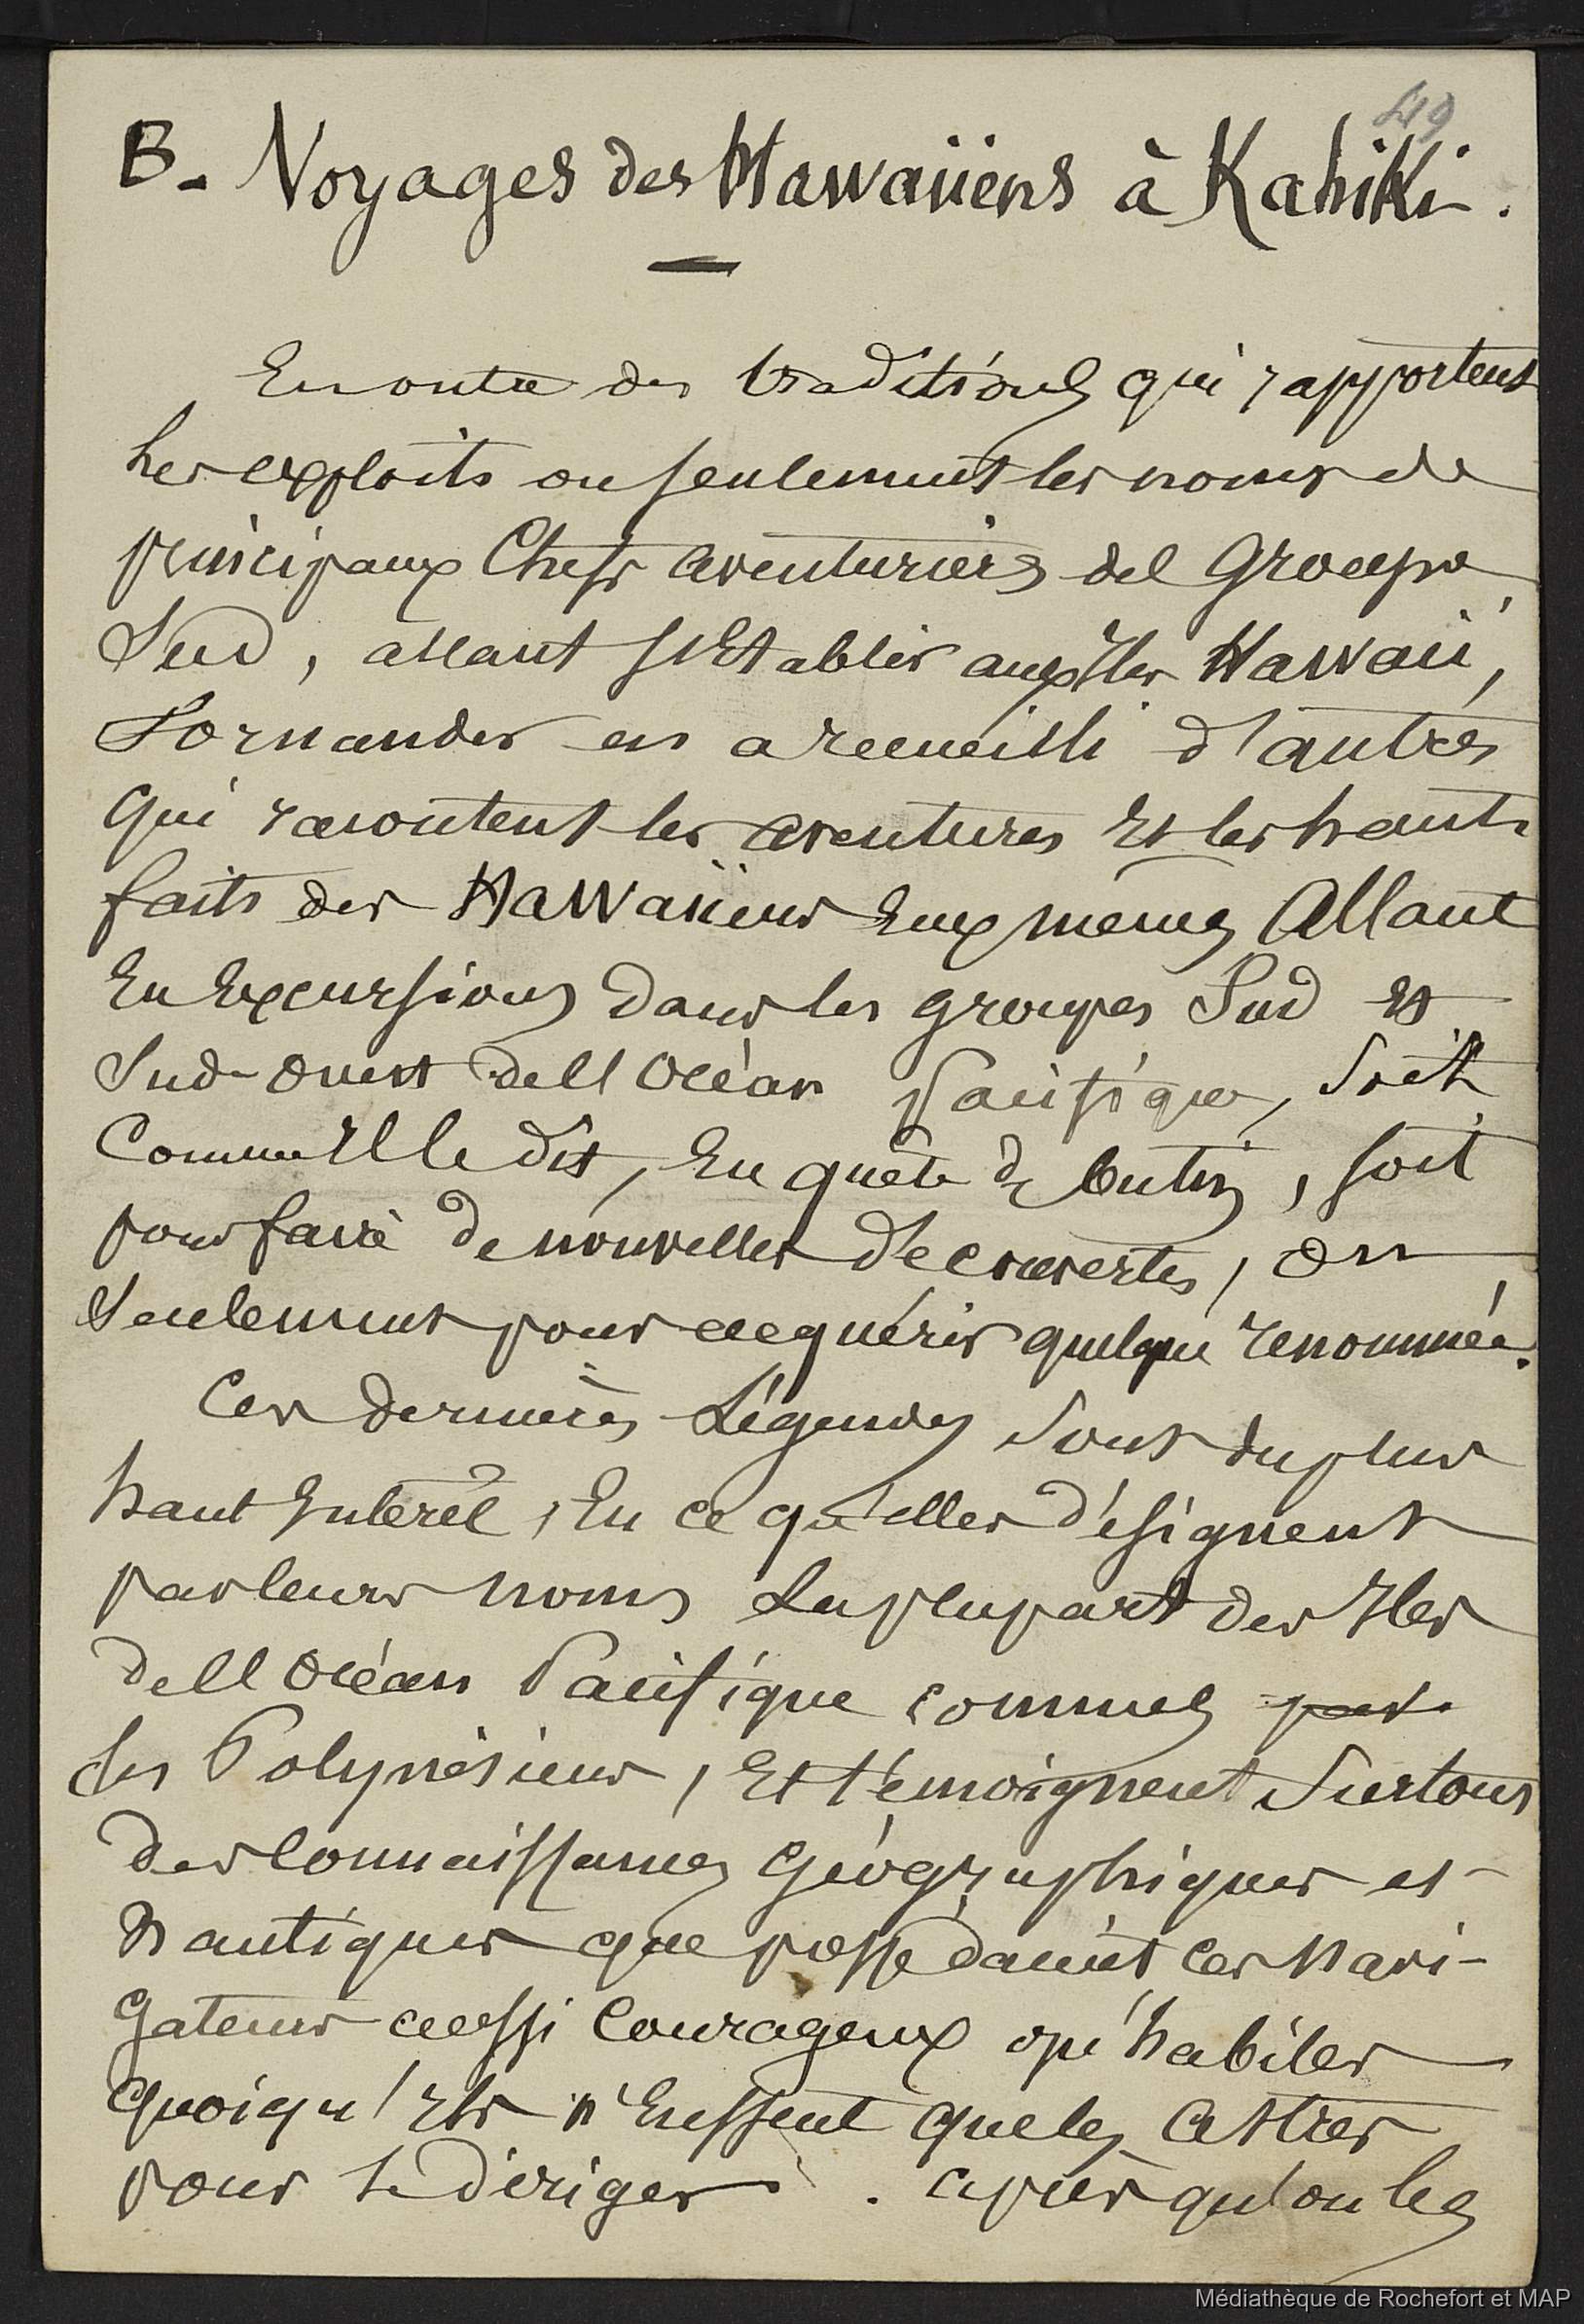 49
B - Voyages des Hawaiiens à Kahiki.
En outre des traditions qui rapportent
les exploits ou seulement les noms de
principaux Chefs aventuriers del Groupe
Sud, allant s'Etablir aux Iles Hawaii,
Fornander en a recueilli d'autres
qui racontent les aventures Et les hauts
faits des Hawaiiens Eux mêmes Allant
En Excursions dans les groupes Sud Et
Sud-Ouest de l'Océan Pacifique, Soit
Comme Il le dit, En quête de butin, soit
pour faire de nouvelles découvertes, ou
Seulement pour acquérir quelque renommée.
Ces dernières Légendes Sont du plus
haut Intérêt, En ce qu'elles désignent
par leurs noms La plupart des Iles
de l'Océan Pacifique connues par
les Polynésiens, Et témoignent Surtout
des Connaissances Géographiques et
Nautiques que possédaient ces Navi-
gateurs aussi Courageux qu'habiles
Quoiqu'Ils n'Eussent que les Astres
pour se diriger. Après qu'on les
Médiathèque de Rochefort et MAP